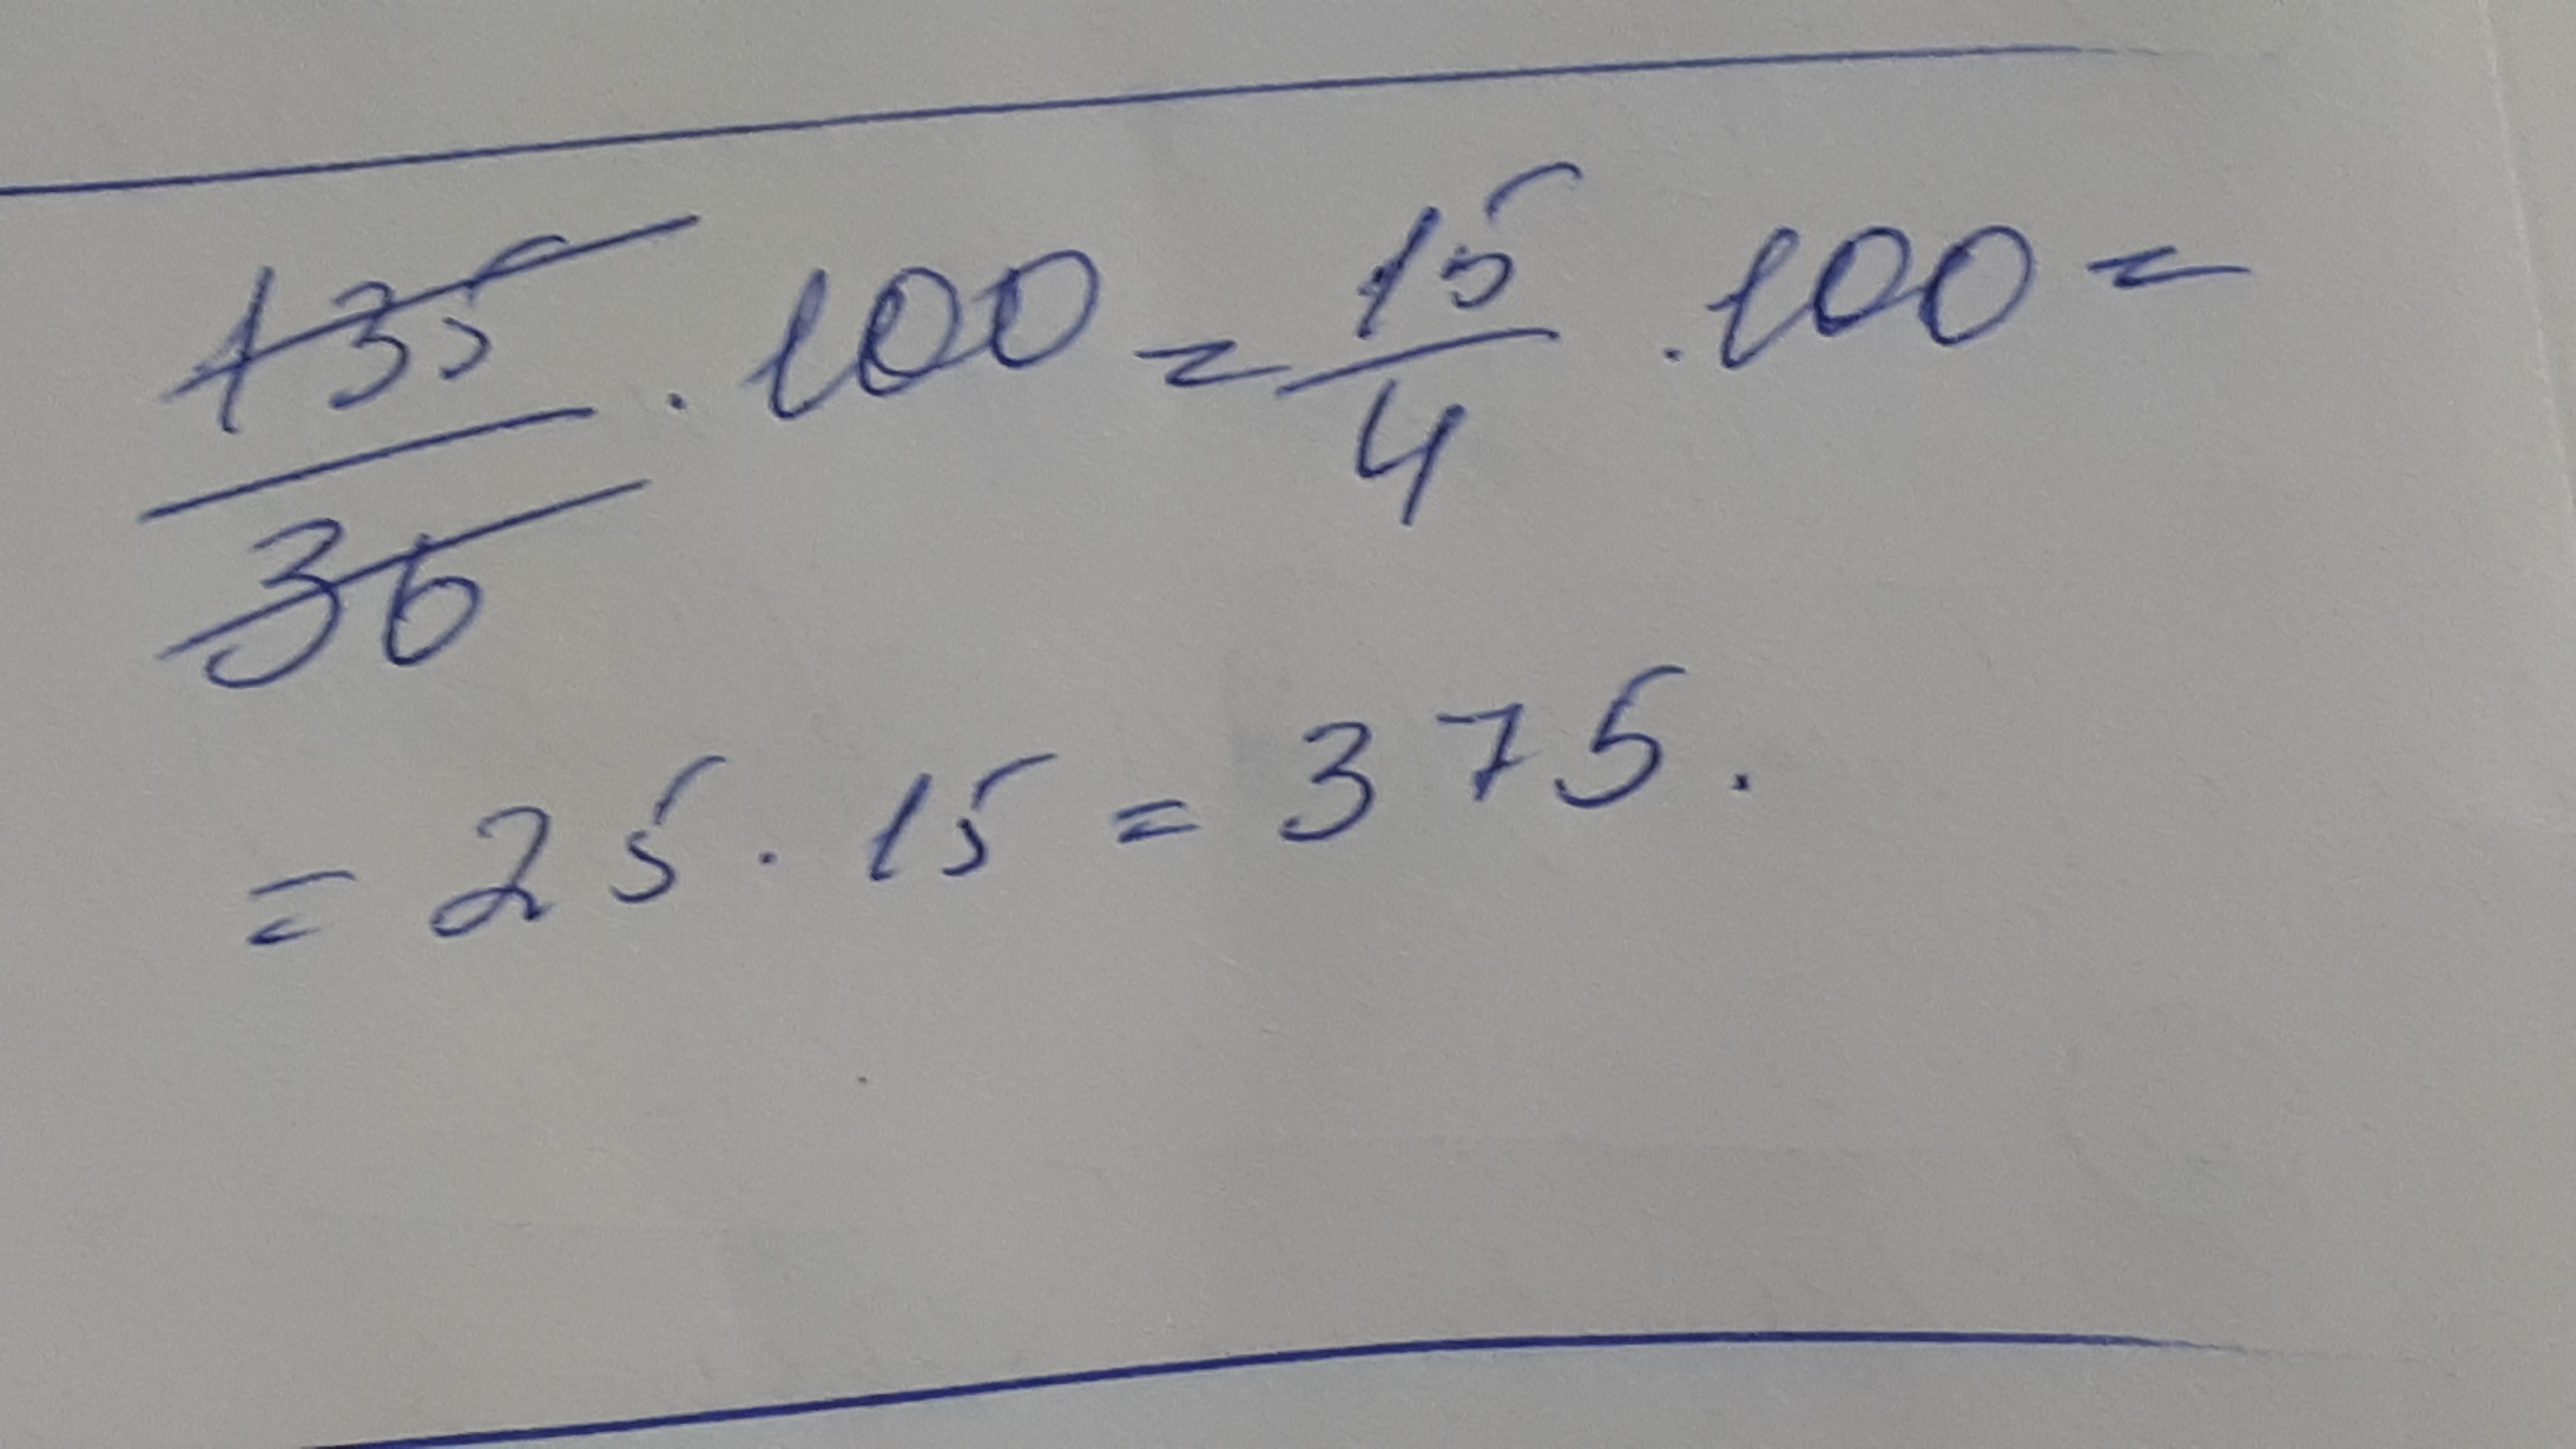 135/36 · 100 = 15/4 · 100 =
= 25 · 15 = 375.